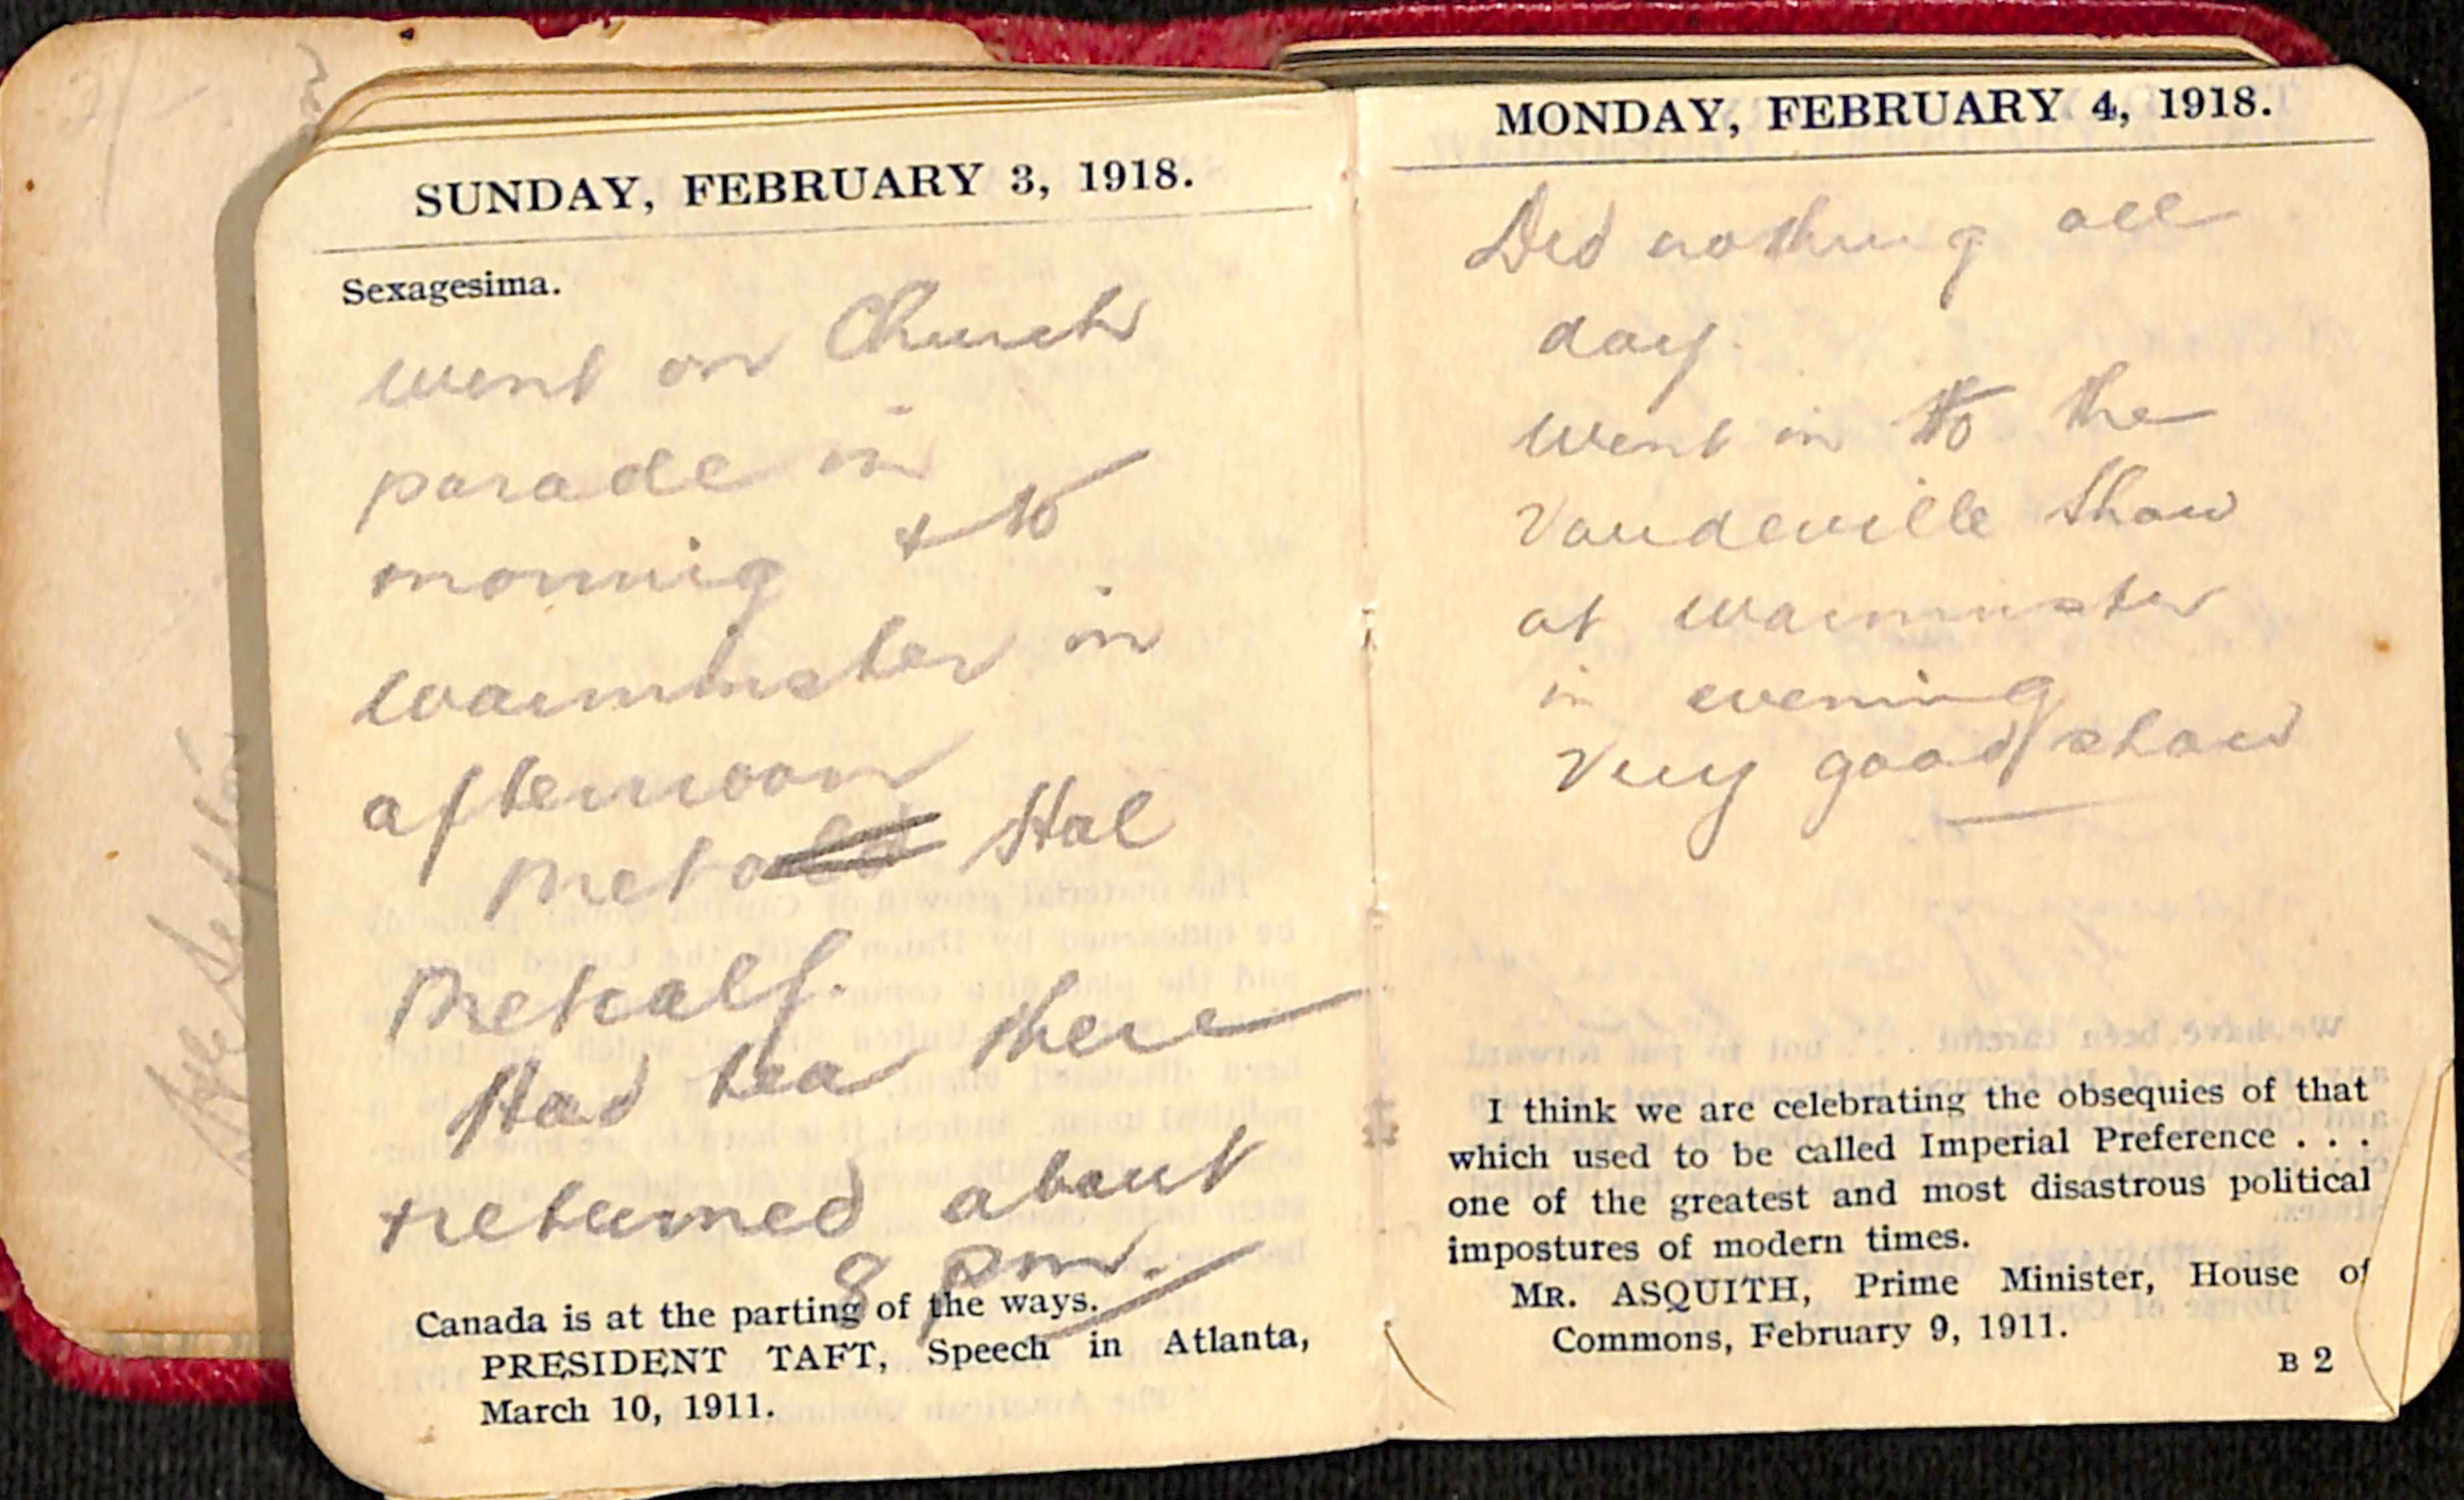 SUNDAY, FEBRUARY 3, 1918.
Sexagesima.
went on Church
parade in
morning & to
Warminster in
afternoon
Met Hal
Metcalf.
Had tea there
& returned about
8 pm.
Canada is at the parting of the ways.
PRESIDENT TAFT, Speech in Atlanta,
March 10, 1911.
MONDAY, FEBRUARY 4, 1918.
Did nothing all
day.
Went in to the
Vaudeville Show
at Warminster
in evening
Very good show
I think we are celebrating the obsequies of that
which used to be called Imperial Preference . . .
one of the greatest and most disastrous political
impostures of modern times.
MR. ASQUITH, Prime Minister, House of
Commons, February 9, 1911.
B 2